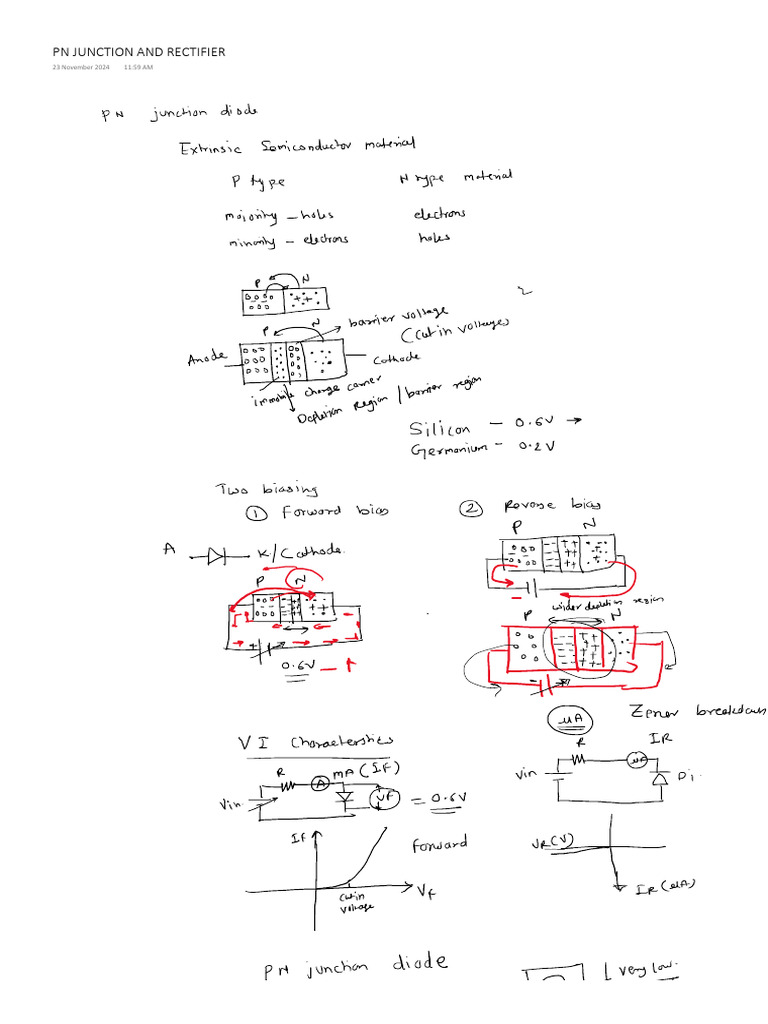 PN JUNCTION AND RECTIFIER
23 November 2024 11:59 AM
PN junction diode
Extrinsic Semiconductor material
P type N type material
majority - holes electrons
minority - electrons holes
P N
P N barrier voltage
(Cut in voltage)
Anode Cathode
immobile charge carrier
Depletion Region / barrier region
Silicon - 0.6V →
Germanium - 0.2V
Two biasing
① Forward bias ② Reverse bias
A K/Cathode P N
P N
wider depletion region
P N
0.6V
μA Zener breakdown
VI Characteristics
R A mA (IF) R IR
Vin VF = 0.6V Vin μA Di.
IF Forward VR(V)
Cut in voltage VF IR (μA)
PN junction diode very low.